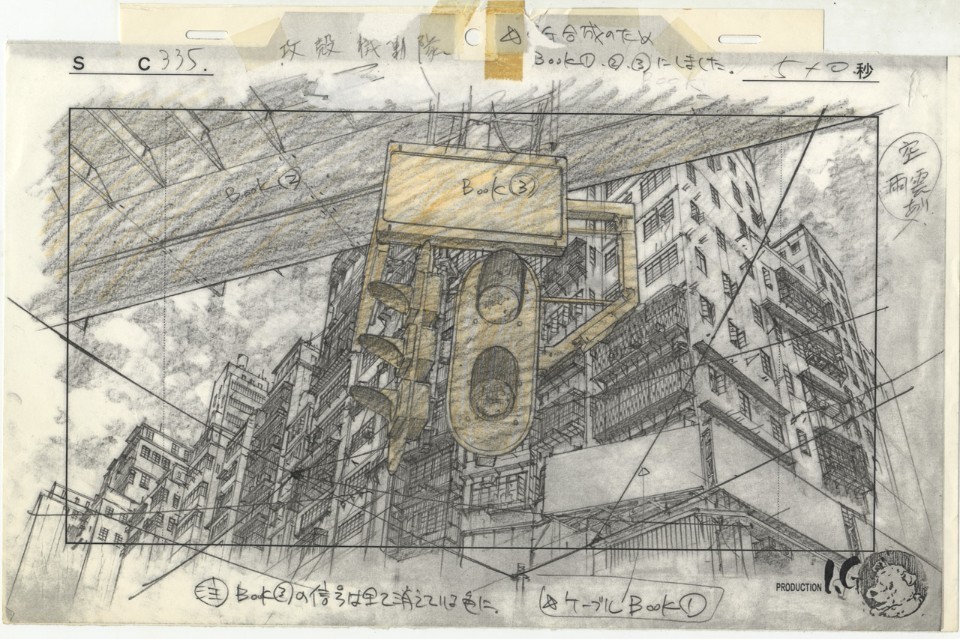 S C 335. 攻殻機動隊
合成のため
Book①.②.③にしました。
5+0秒
空
雨雲
あり
Book②
Book③
注 Book③の信号は全て消えている色に。
ケーブルBook①
PRODUCTION I.G